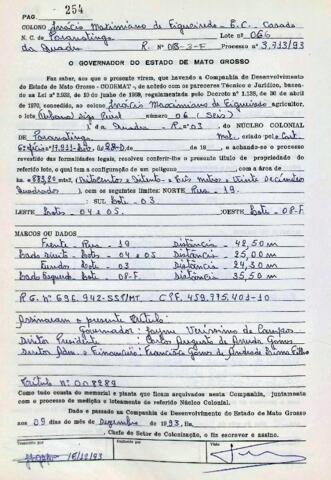 Pag. 254
COLONO Inácio Maximiano de Figueiredo - E.C. Casado
N. C. de Paranatinga Lote nº 066
da Quadra R. Nº 03-3-F Processo nº 3.733/93
O GOVERNADOR DO ESTADO DE MATO GROSSO
Faz saber, aos que a presente virem, que havendo a Companhia de Desenvolvimento
do Estado de Mato Grosso - CODEMAT -, de acordo com os pareceres Técnico e Jurídico, basea-
dos na Lei nº 2.922, de 10 de junho de 1969, regulamentada pelo Decreto nº 1.138, de 30 de abril
de 1970, concedido, ao colono Inácio Maximiano de Figueiredo agricultor,
o lote número 06 (Seis)
da Quadra - R-nº 03 do NÚCLEO COLONIAL
de Paranatinga Mat.
de e achando-se o processo
revestido das formalidades legais, resolveu conferir-lhe o presente título de propriedade
do referido lote, o qual tem a configuração de um polígono com a área de
ha. 883,20 mts2, (Oitocentos e Oitenta e Três Metros e Vinte Decímetros
Quadrados), com os seguintes limites: NORTE Rua - 19.
SUL Lote - 03
LESTE Lotes - 04 e 05 OESTE Lote - 08-F
MARCOS OU DADOS
Frente - Rua - 19 Distância - 42,50 m
Lado Direito - Lotes - 04 e 05 Distância - 25,00 m
Fundos - Lote - 03 Distância - 24,30 m
Lado Esquerdo - Lote - 08-F Distância - 35,50 m
R.G. Nº 696.942-SSP/MT. CPF. 459.775.401-10
Assinaram o presente Título:
Governador: Jayme Veríssimo de Campos
Diretor Presidente: Carlos Augusto de Arruda Gomes
Diretor Adm. e Financeiro: Francisco Gomes de Andrade Lima Filho
Título Nº 008289
Como tudo consta do memorial e planta que ficam arquivados nesta Companhia, juntamente
com o processo de medição e loteamento do referido Núcleo Colonial.
Dado e passado na Companhia de Desenvolvimento do Estado de Mato Grosso
aos 09 dias do mês de dezembro de 1993, Eu,
Chefe do Setor de Colonização, o fiz escrever e assino.
Transcrito por Conferido Visto
15/12/93